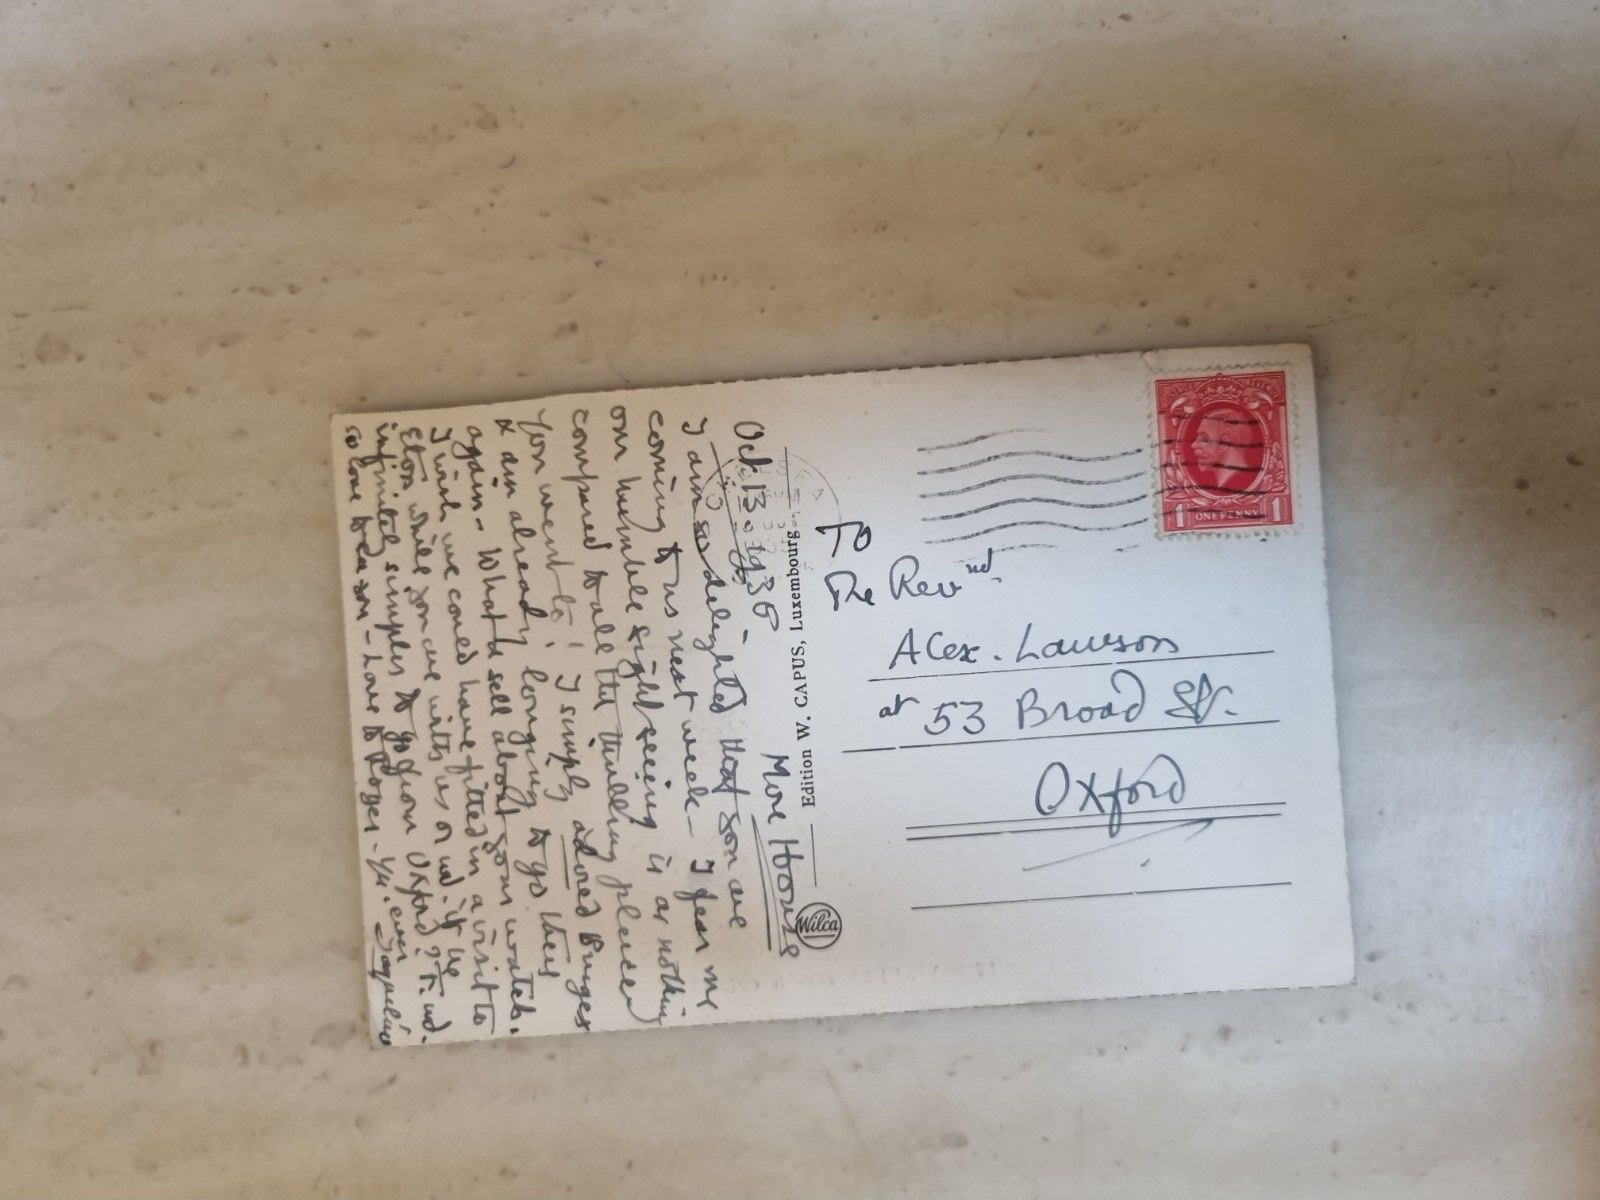 Oct 13. 1936
More House
I am so delighted that you are
coming to us next week - I fear me
our humble sightseeing is as nothing
compared to all the thrilling places
you went to! I simply adored Bruges
& am already longing to go there
again - What a sell about your watch.
I wish we could have fitted in a visit to
Eton while you are with us or wd. it be
infinitely simpler to go from Oxford? It wd.
so love to see you - Love to Roger - Yr. ever
Edition W. CAPUS, Luxembourg
Wilca
To
The Revnd.
Alex. Lawson
at 53 Broad St.
Oxford
POSTAGE REVENUE
1 ONE PENNY 1